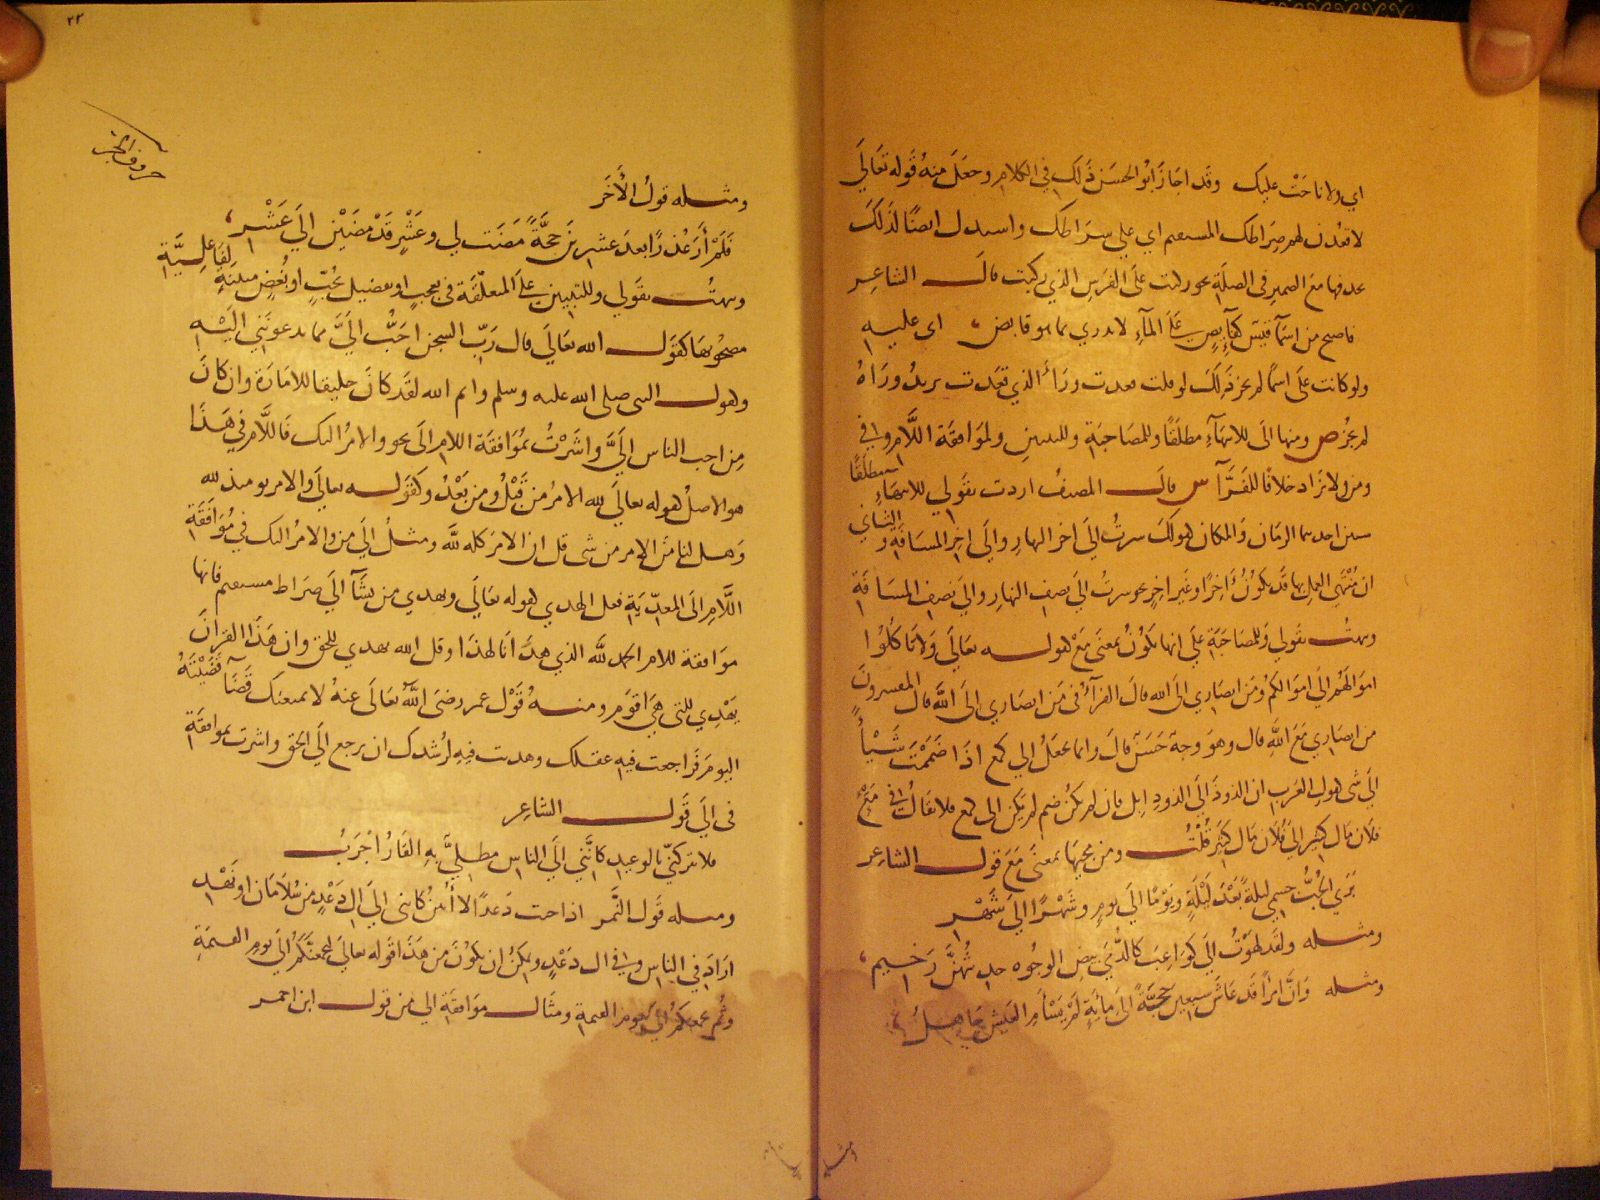 اي ولا ناحت عليك وقد اجاز ابو الحسن ذلك في الكلام وجعل منه قوله تعالى
لاقعدن لهم صراطك المستقيم اي على صراطك واستدل ايضا لذلك
بحذفها مع الضمير في الصلة نحو ركبت على الفرس الذي ركبت قال الشاعر
فاصبح من اسماء قيس كقابض على الماء لا يدري بما هو قابض اي عليه
ولو كانت على اسما لم يجز ذلك لو قلت قعدت وراء الذي قعدت تريد وراه
لم يجز ص ومنها الى للانتهاء مطلقا وللمصاحبة وللتبيين ولموافقة اللام وفي
ومن ولا تزاد خلافا للفراء س قال المصنف اردت بقولي للانتهاء مطلقا
شيئين احدهما الزمان والمكان كقولك سرت الى اخر النهار والى اخر المسافة والثاني
ان منتهى العمل بها قد يكون آخرا وغير اخر نحو سرت الى نصف النهار والى نصف المسافة
ونبهت بقولي وللمصاحبة على انها تكون بمعنى مع كقوله تعالى ولا تاكلوا
اموالهم الى اموالكم ومن انصاري الى الله قال الفراء في من انصاري الى الله قال المفسرون
من انصاري مع الله قال وهو وجه حسن قال وانما تجعل الى كمع اذا ضممت شيئا
الى شي كقول العرب ان الذود الى الذود ابل فان لم يكن ضم لم يكن الى كمع فلا يقال في مع
فلان مال كثير الى فلان مال كثير قلت ومن مجيها بمعنى مع قول الشاعر
برى الحب جسمي ليلة بعد ليلة ويوما الى يوم وشهرا الى شهر
ومثله ولقد لهوت الى كواعب كالدمى بيض الوجوه حديثهن رخيم
ومثله وان امرأ قد عاش سبعين حجة الى ماية لم يسأم العيش جاهل
٢٢
حروف الجر
ومثله قول الاخر
فلم أر عذرا بعد عشرين حجة مضت لي وعشر قد مضين الى عشر
ونبهت بقولي وللتبيين على المتعلقة في تعجب او تفضيل بحب او بغض مبينة لفاعلية
مصحوبها كقول الله تعالى قال رب السجن احب الي مما يدعونني اليه
وكقول النبي صلى الله عليه وسلم وايم الله لقد كان خليقا للامارة وان كان
من احب الناس الي واشرت بموافقة اللام الى نحو والامر اليك فاللام في هذا
هو الاصل كقوله تعالى لله الامر من قبل ومن بعد وكقوله تعالى والامر يومئذ لله
وهل لنا من الامر من شي قل ان الامر كله لله ومثل الى من والامر اليك في موافقة
اللام الى المعدية فعل الهدي كقوله تعالى ويهدي من يشآ الى صراط مستقيم فانها
موافقة للام الحمد لله الذي هدانا لهذا وقل الله يهدي للحق وان هذا القران
يهدي للتي هي اقوم ومنه قول عمر رضى الله تعالى عنه لا يمنعنك قضا قضيته
اليوم فراجعت فيه عقلك وهديت فيه لرشدك ان ترجع الى الحق واشرت بموافقة
في الى قول الشاعر
فلا تتركني بالوعيد كانني الى الناس مطلي به القار اجرب
ومثله قول النمر اذا جئت دعدا لا كانني الى ال دعد من سلامان او نهد
اراد في الناس وفي ال دعد ويمكن ان يكون من هذا قوله تعالى ليجمعنكم الى يوم القيمة
وثم يجمعكم الى يوم القيمة ومثال موافقة الى من قول ابن احمر